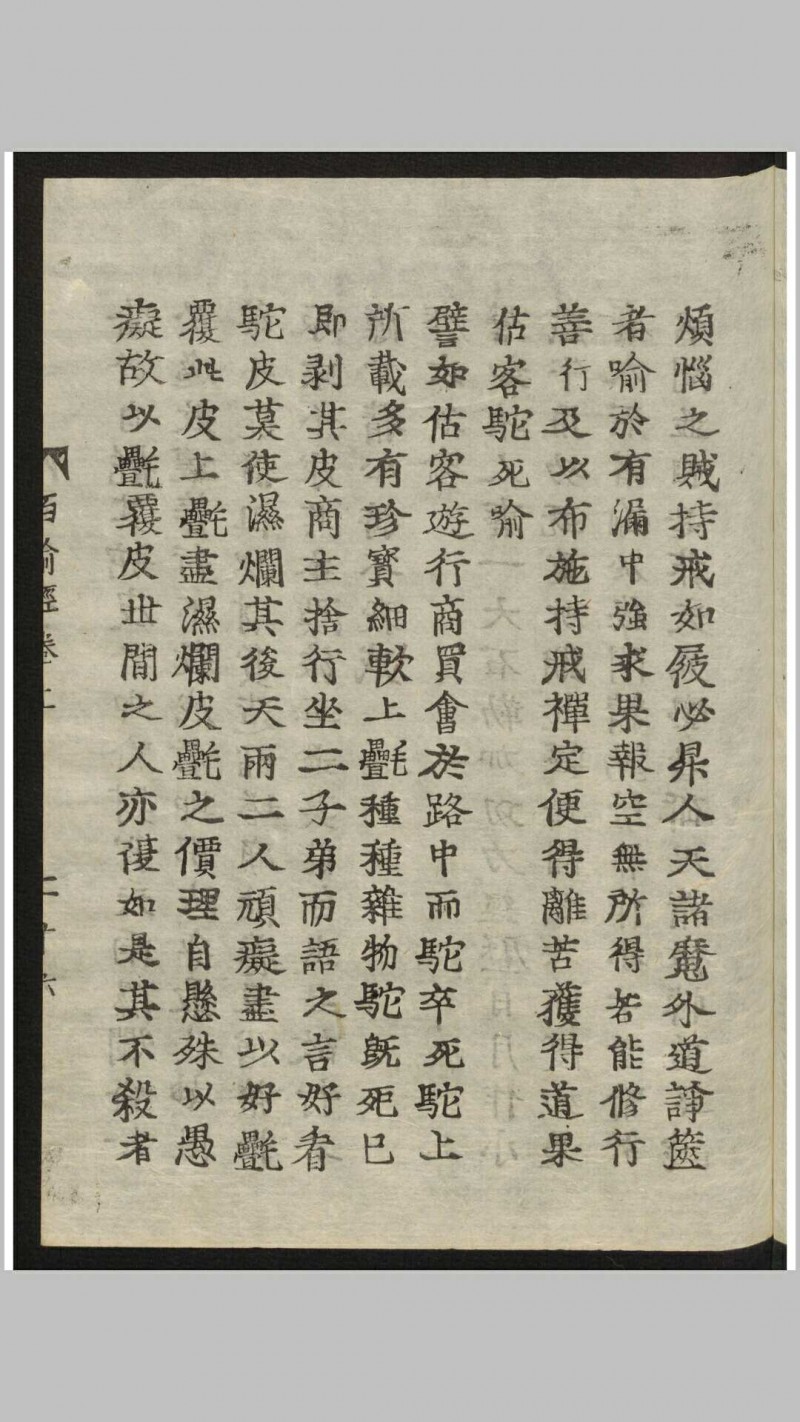 煩惱之賊持戒如屐必昇人天諸魔外道諍篋
者喻於有漏中強求果報空無所得若能修行
善行及以布施持戒禪定便得離苦獲得道果
估客駝死喻
譬如估客遊行商買會於路中而駝卒死駝上
所載多有珍寶細軟上㲲種種雜物駝既死已
即剥其皮商主捨行坐二子弟而語之言好看
駝皮莫使濕爛其後天雨二人頑癡盡以好㲲
覆此皮上㲲盡濕爛皮㲲之價理自懸殊以愚
癡故以㲲覆皮世間之人亦復如是其不殺者
百喻經卷二
二十六